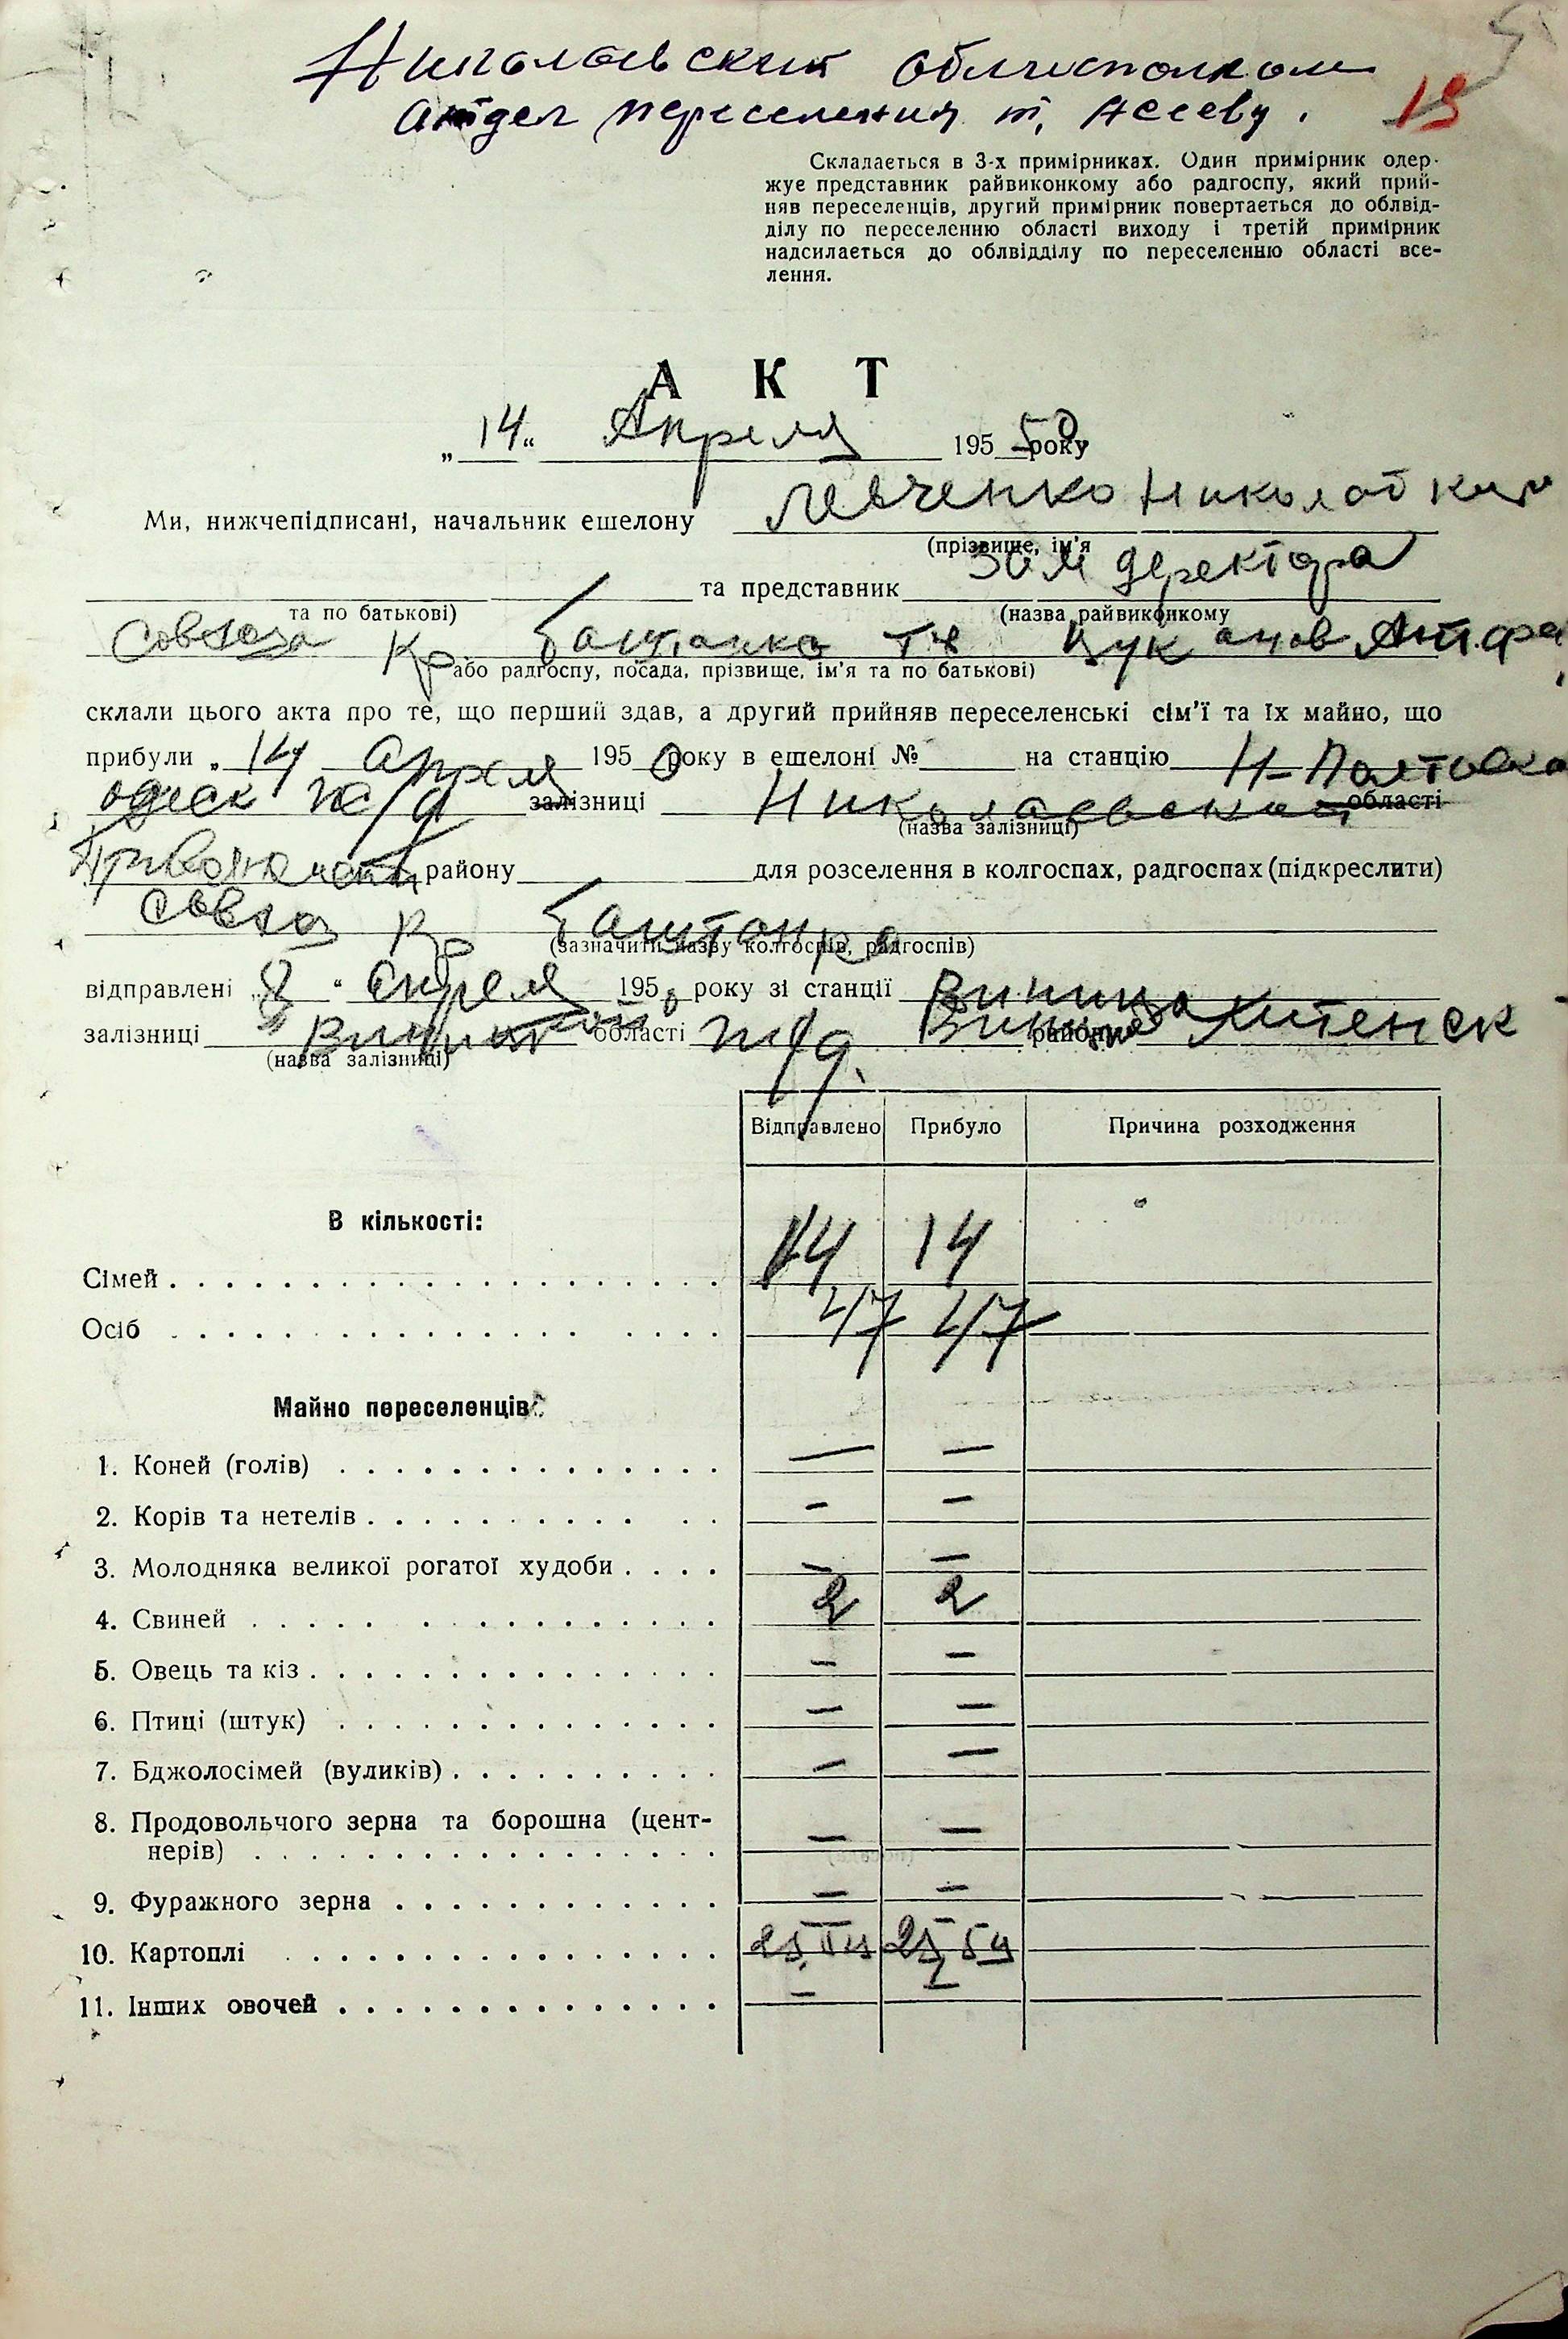 Николаевский облисполком
отдел переселения т. Асееву.
19
Складається в 3-х примірниках. Один примірник одер-
жує представник райвиконкому або радгоспу, який прий-
няв переселенців, другий примірник повертається до облвід-
ділу по переселенню області виходу і третій примірник
надсилається до облвідділу по переселенню області все-
лення.
АКТ
„14“ Апреля 195 50 року
Ми, нижчепідписані, начальник ешелону Левченко Николай
(прізвище, ім'я
та представник зам деректора
та по батькові) (назва райвиконкому
Совхоза Кр Баштанка тч Цуканов
або радгоспу, посада, прізвище, ім'я та по батькові)
склали цього акта про те, що перший здав, а другий прийняв переселенські сім'ї та їх майно, що
прибули „14 апреля 1950 року в ешелоні № на станцію Н-Полтовка
одеск ж/д залізниці Николаевской області
(назва залізниці)
району для розселення в колгоспах, радгоспах (підкреслити)
совхоз Кр Баштанка
(зазначити назву колгоспів, радгоспів)
відправлені „8“ апреля 1950 року зі станції Виница
залізниці області ж/д. району
(назва залізниці)
Відправлено Прибуло Причина розходження
В кількості:
Сімей 14 14
Осіб 47 47
Майно переселенців:
1. Коней (голів) — —
2. Корів та нетелів — —
3. Молодняка великої рогатої худоби — —
4. Свиней 2 2
5. Овець та кіз — —
6. Птиці (штук) — —
7. Бджолосімей (вуликів) — —
8. Продовольчого зерна та борошна (цент-
нерів) — —
9. Фуражного зерна — —
10. Картоплі
11. Інших овочей — —